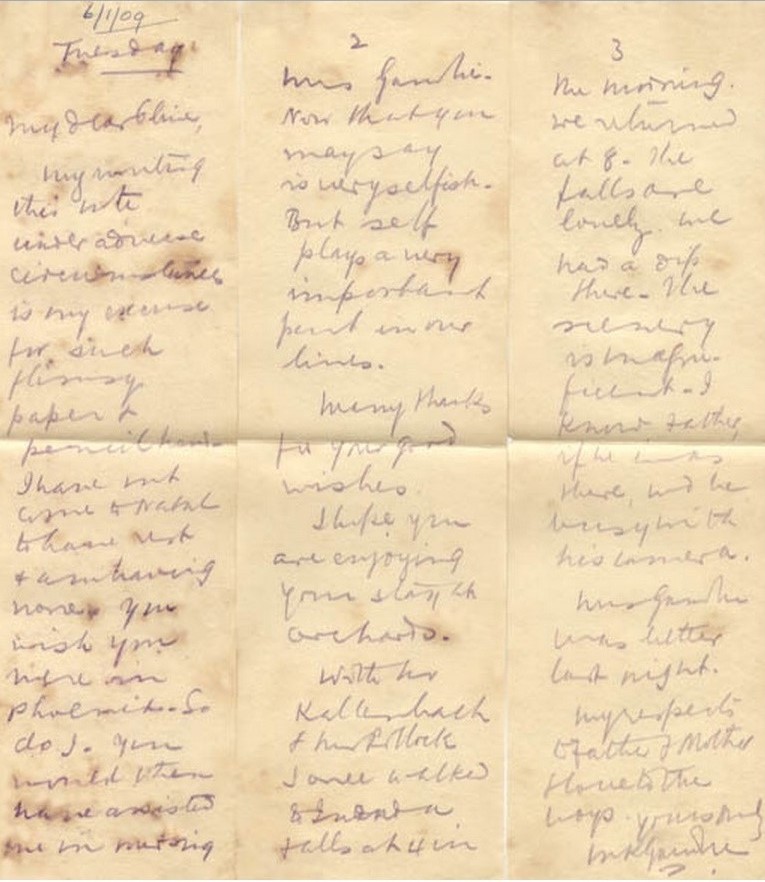 6/1/09
Tuesday
My dear Olive,
my writing
this note
under adverse
circumstances
is my excuse
for such
flimsy
paper &
pencil hand.
I have not
come to Natal
to have rest
& am having
none. You
wish you
were in
Phoenix. So
do I. You
would then
have assisted
me in nursing
2
Mrs Gandhi.
Now that you
may say
is very selfish.
But self
plays a very
important
part in our
lives.
Many thanks
for your good
wishes.
I hope you
are enjoying
your stay at
orchards.
With Mr
Kallenbach
& Mrs Pollock
I once walked
to Inanda
falls at 4 in
3
the morning.
We returned
at 8. The
falls are
lovely. We
had a dip
there. The
scenery
is magni-
ficent. I
know father,
if he was
there, wd be
busy with
his camera.
Mrs Gandhi
was better
last night.
My respects
to Father & Mother
& love to the
boys. Yours
MKGandhi